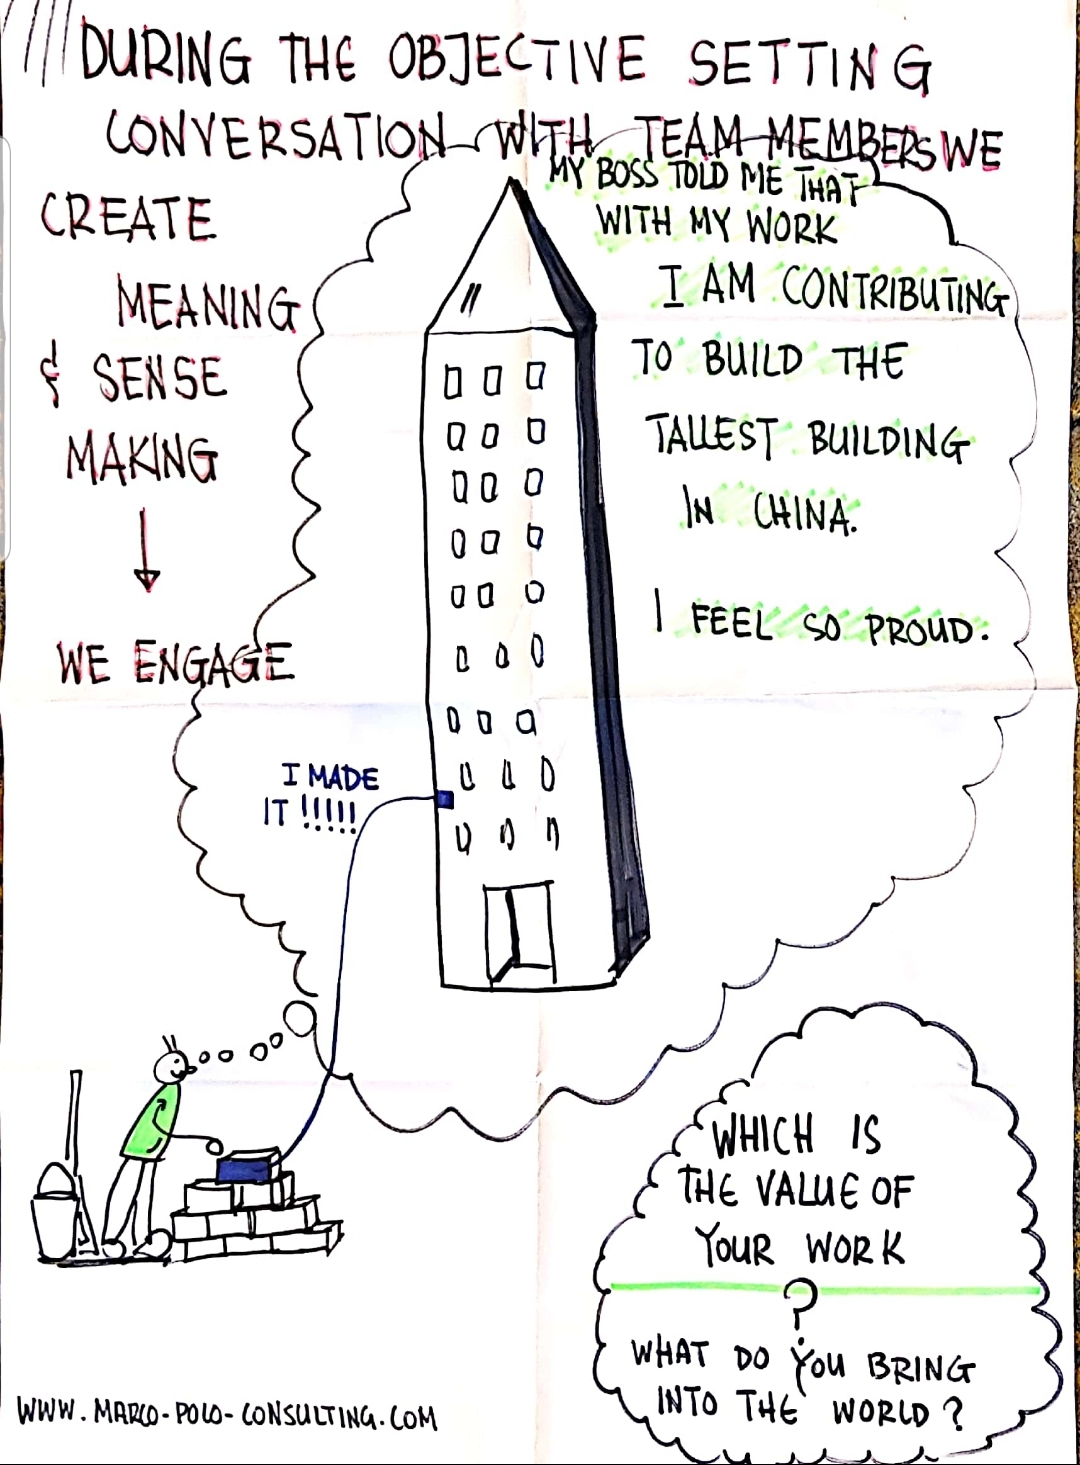 DURING THE OBJECTIVE SETTING
CONVERSATION WITH TEAM MEMBERS WE
CREATE
MEANING
& SENSE
MAKING
WE ENGAGE
MY BOSS TOLD ME THAT
WITH MY WORK
I AM CONTRIBUTING
TO BUILD THE
TALLEST BUILDING
IN CHINA.
I FEEL SO PROUD.
I MADE
IT !!!!!
WHICH IS
THE VALUE OF
YOUR WORK
?
WHAT DO YOU BRING
INTO THE WORLD ?
WWW.MARCO-POLO-CONSULTING.COM